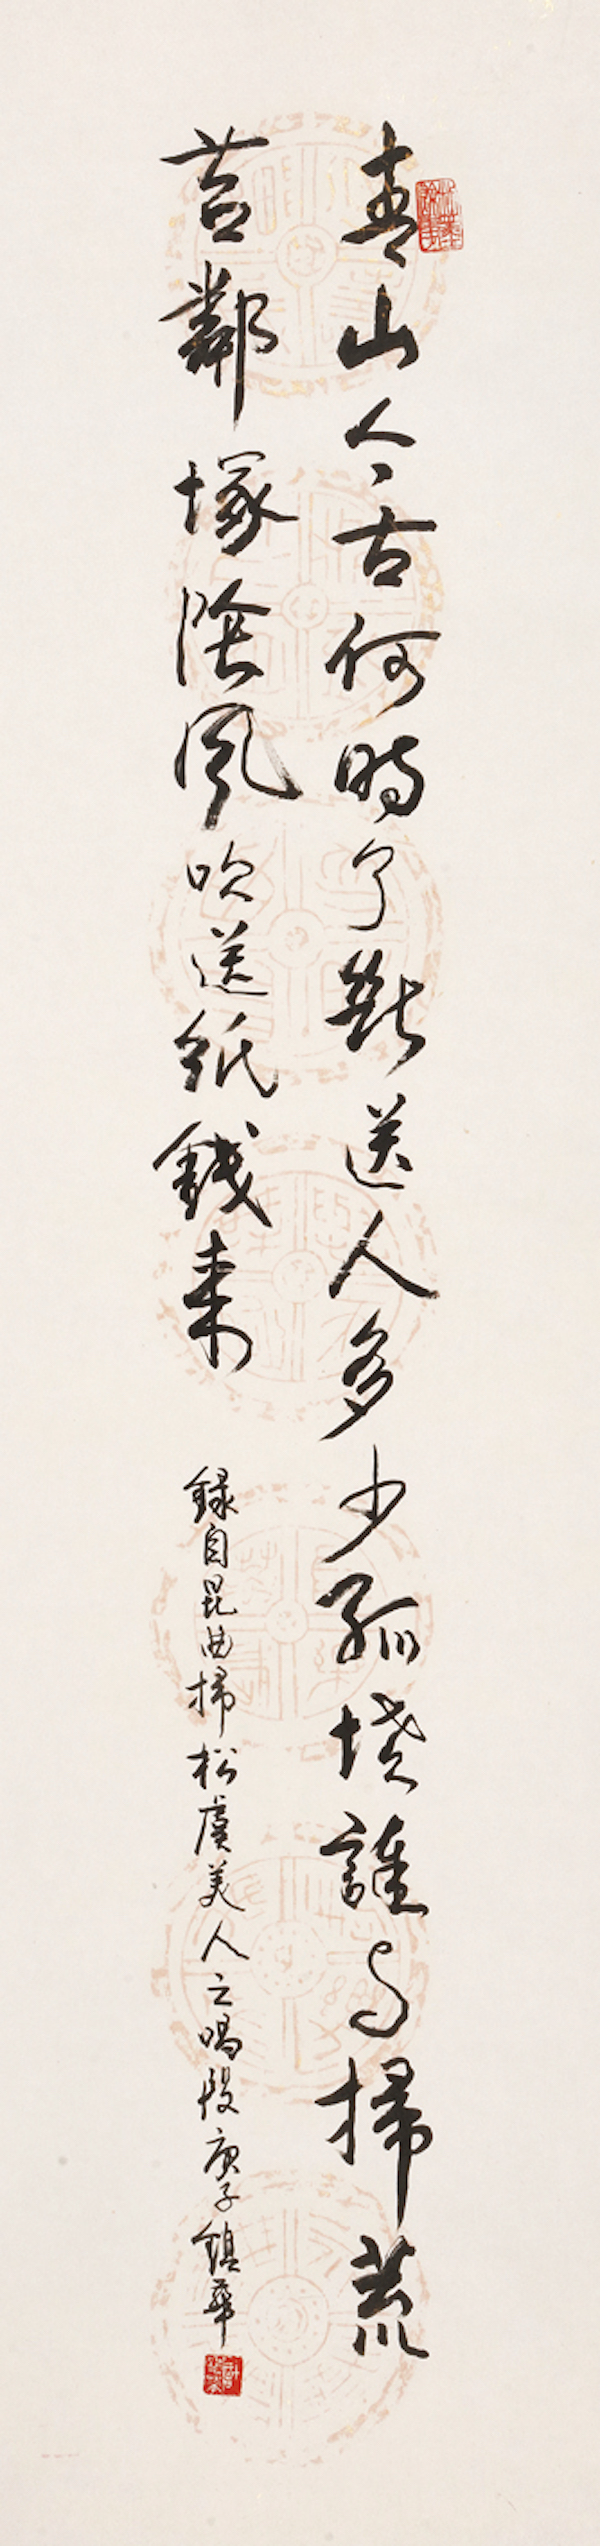 青山今古何時了斷送人多少孤墳誰与掃荒
苔鄰塚陰風吹送紙錢來
錄自昆曲掃松虞美人之唱段庚子鎮華